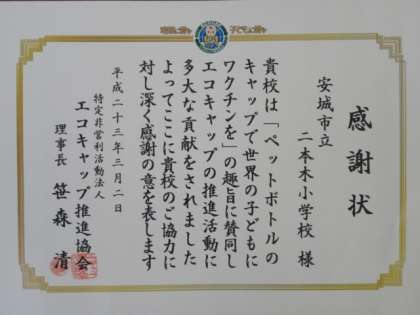 感謝状
安城市立
二本木小学校 様
貴校は「ペットボトルの
キャップで世界の子どもに
ワクチンを」の趣旨に賛同し
エコキャップの推進活動に
多大な貢献をされました
よってここに貴校のご協力に
対し深く感謝の意を表します
平成二十三年三月二日
特定非営利活動法人
エコキャップ推進協会
理事長 笹森 清